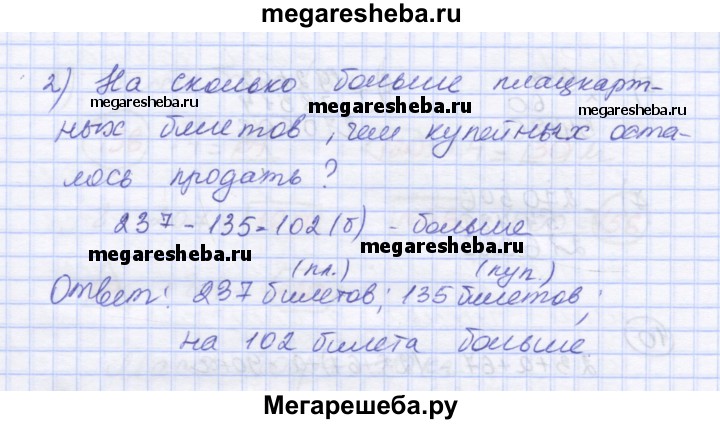 megaresheba.ru
2) На сколько больше плацкарт-
megaresheba.ru megaresheba.ru megaresheba.ru
ных билетов, чем купейных оста-
лось продать?
237 - 135 = 102 (б) - больше
megaresheba.ru megaresheba.ru
(пл.) (куп.)
Ответ: 237 билетов; 135 билетов;
на 102 билета больше.
Мегарешеба.ру